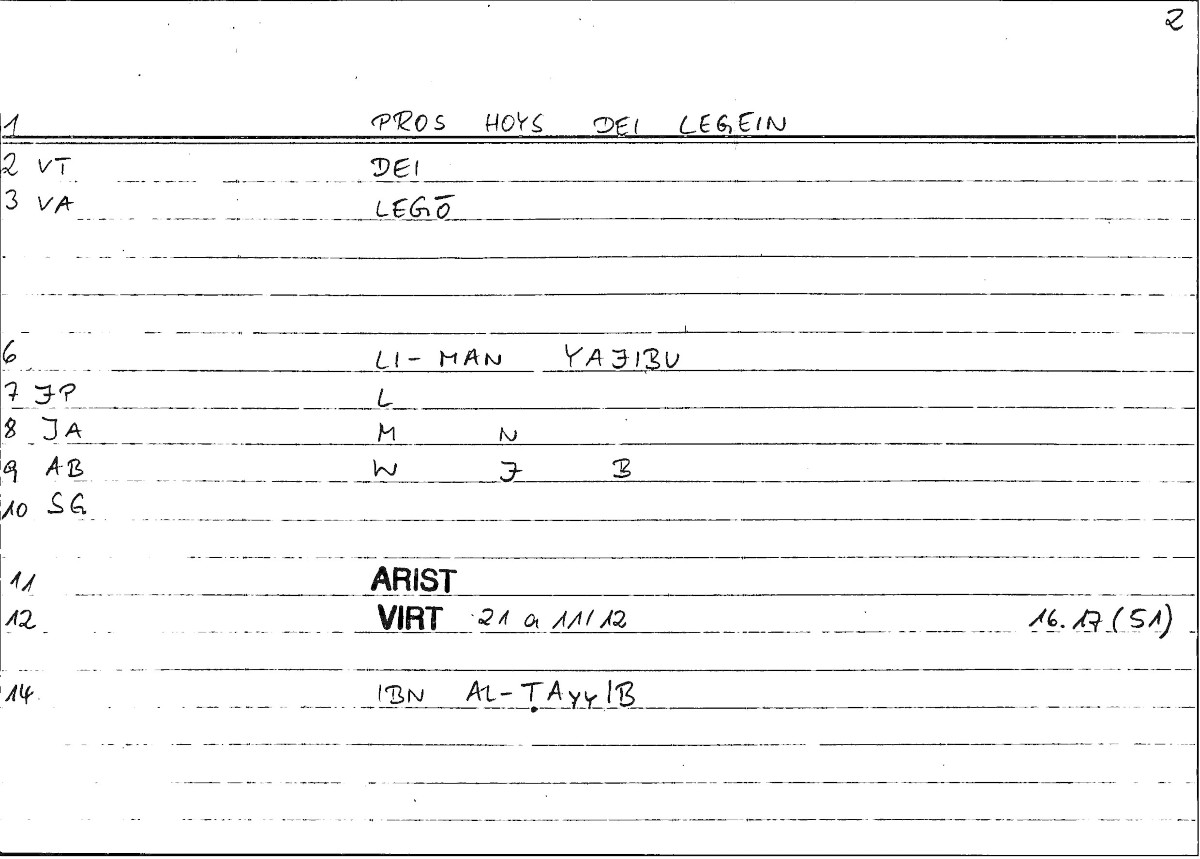 2
1 PROS HOYS DEI LEGEIN
2 VT DEI
3 VA LEGŌ
6 LI-MAN YAJIBU
7 JP L
8 JA M N
9 AB W J B
10 SG
11 ARIST
12 VIRT 21 a 11/12 16.17 (51)
14 IBN AL-ṬAYYIB